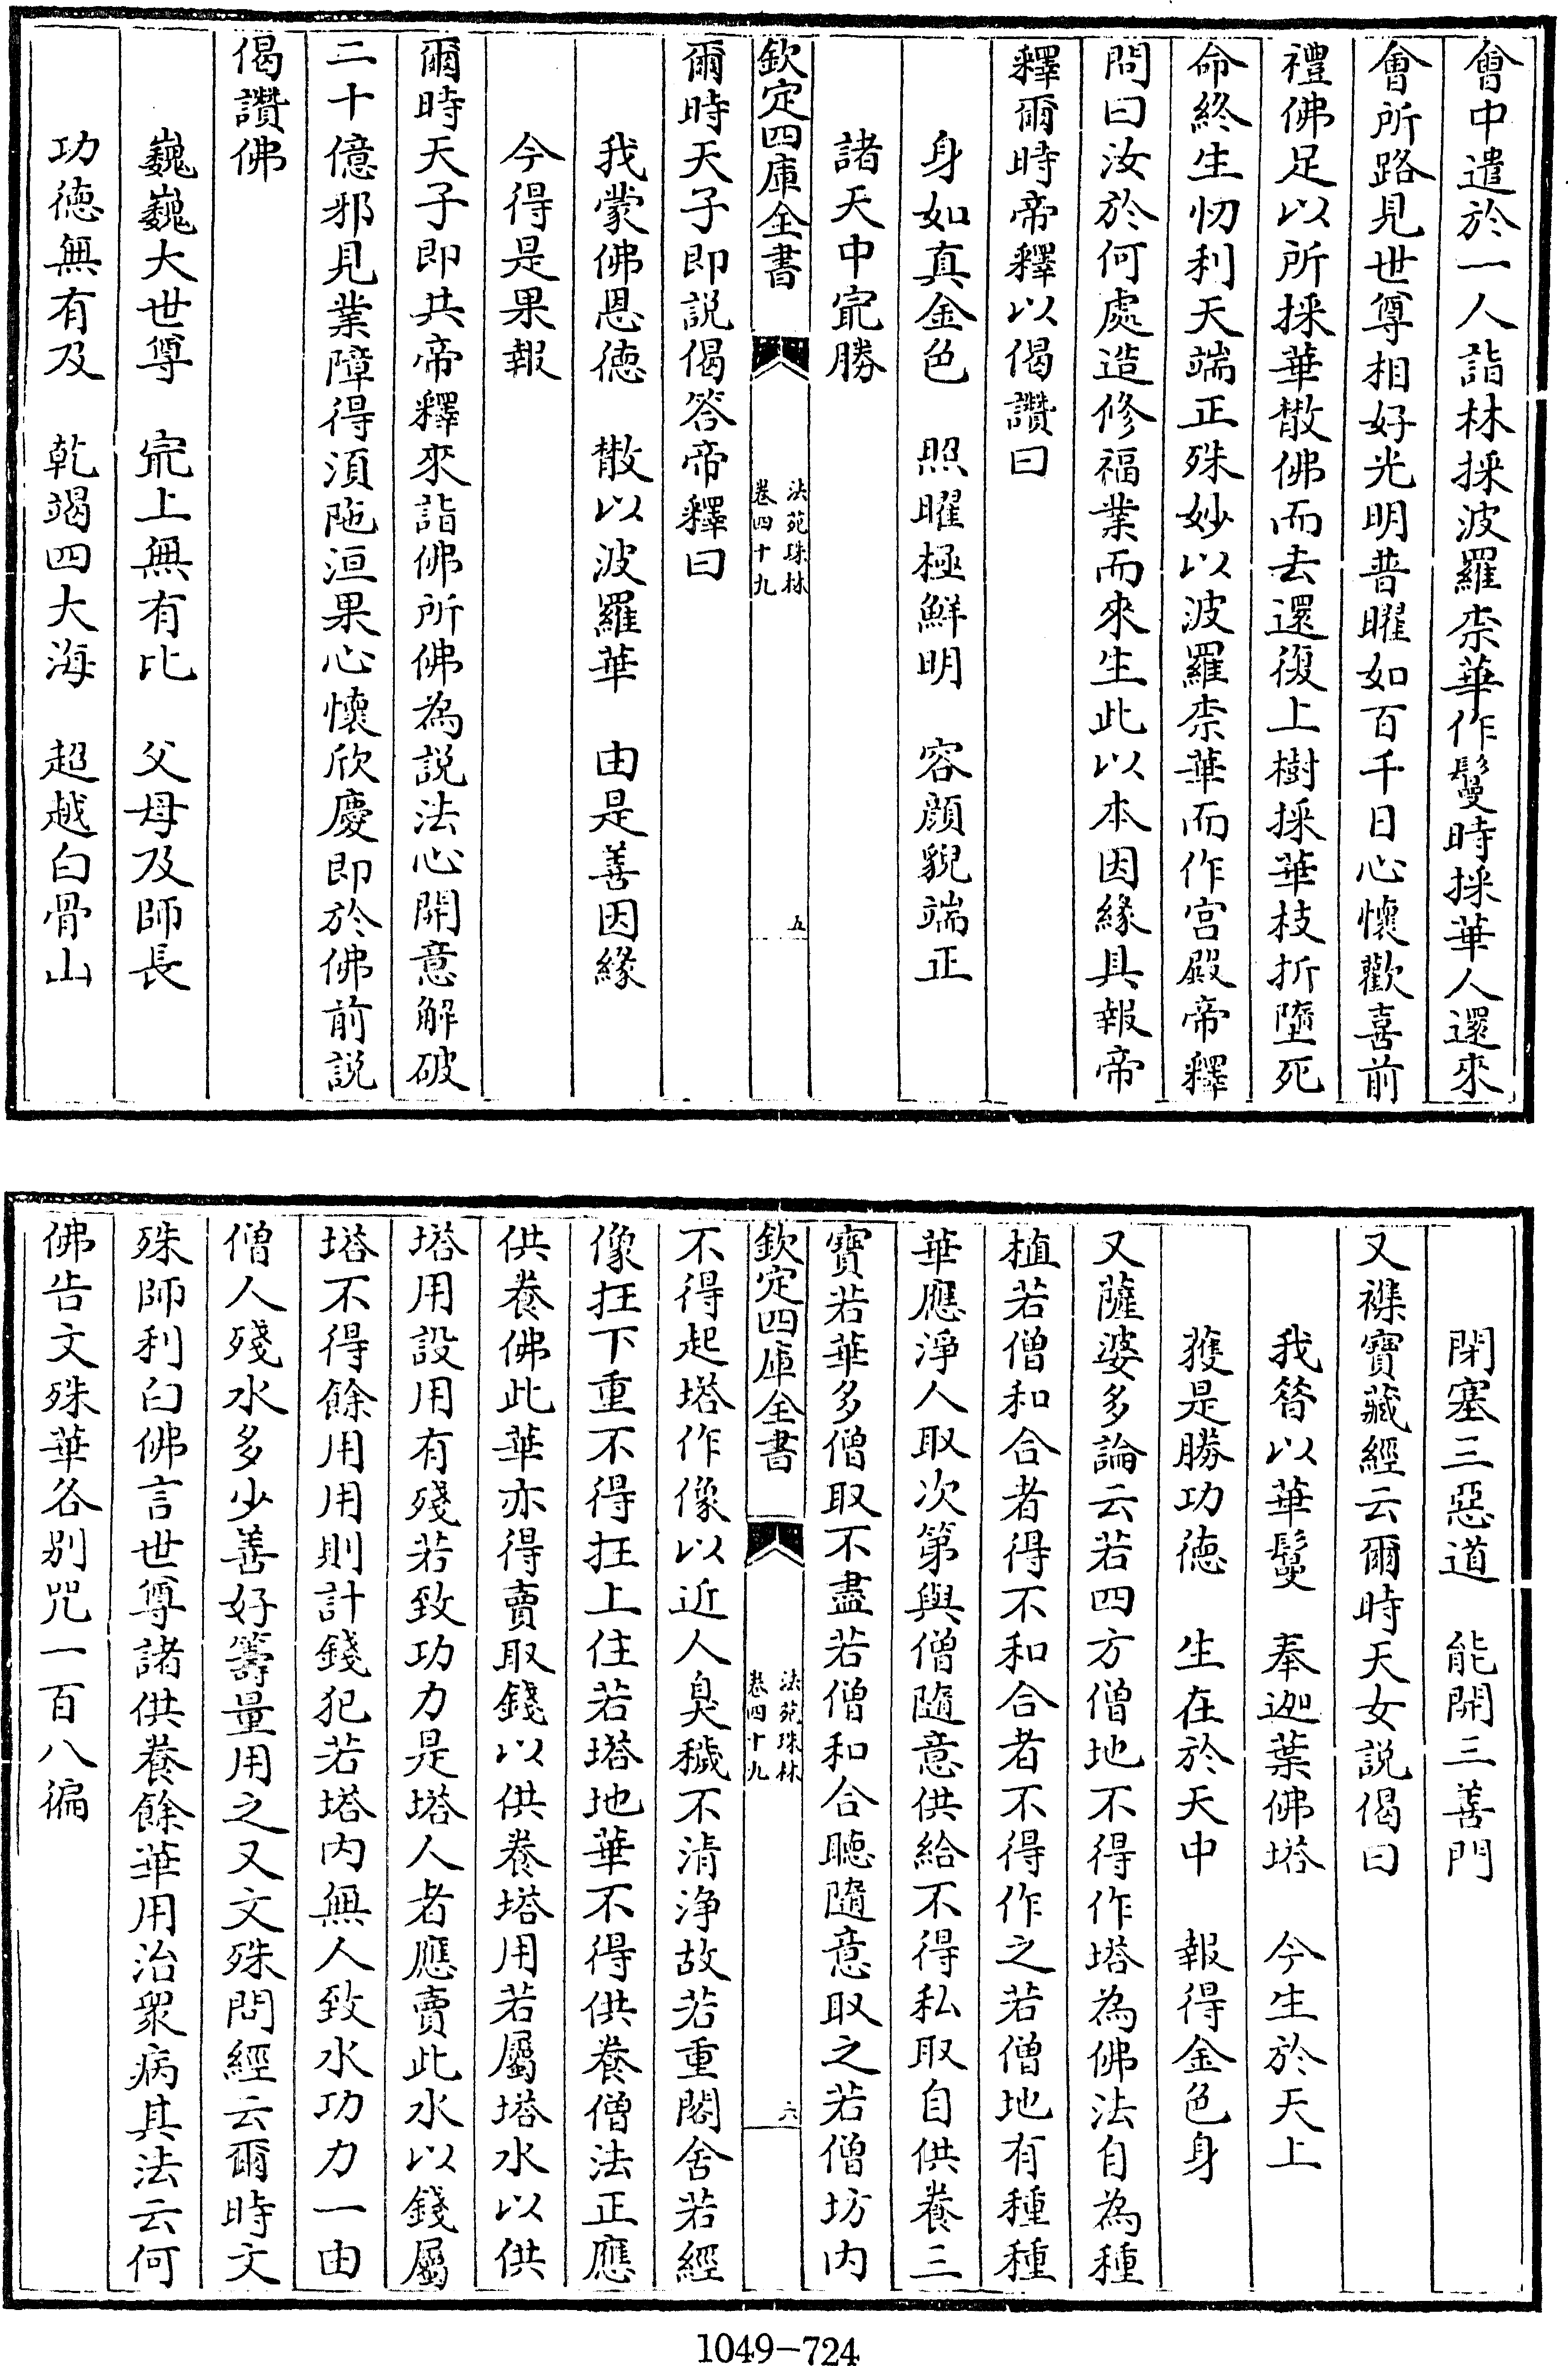 會中遣於一人詣林採波羅柰華作鬘時採華人還來
會所路見世尊相好光明普曜如百千日心懷歡喜前
禮佛足以所採華散佛而去還復上樹採華枝折墮死
命終生忉利天端正殊妙以波羅柰華而作宮殿帝釋
問曰汝於何處造修福業而來生此以本因緣具報帝
釋爾時帝釋以偈讚曰
身如真金色　照曜極鮮明　容顔貌端正
諸天中㝡勝
欽定四庫全書
法苑珠林
卷四十九
五
爾時天子即説偈答帝釋曰
我蒙佛恩徳　散以波羅華　由是善因緣
今得是果報
爾時天子即共帝釋來詣佛所佛為説法心開意解破
二十億邪見業障得湏陁洹果心懷欣慶即於佛前説
偈讚佛
巍巍大世尊　㝡上無有比　父母及師長
功徳無有及　乾竭四大海　超越白骨山
閉塞三惡道　能開三善門
又襍寶藏經云爾時天女説偈曰
我昝以華鬘　奉迦葉佛塔　今生於天上
獲是勝功徳　生在於天中　報得金色身
又薩婆多論云若四方僧地不得作塔為佛法自為種
植若僧和合者得不和合者不得作之若僧地有種種
華應淨人取次第與僧隨意供給不得私取自供養三
寶若華多僧取不盡若僧和合聽隨意取之若僧坊内
欽定四庫全書
法苑珠林
卷四十九
六
不得起塔作像以近人臭穢不清浄故若重閣舍若經
像在下重不得在上住若塔地華不得供養僧法正應
供養佛此華亦得賣取錢以供養塔用若屬塔水以供
塔用設用有殘若致功力是塔人者應賣此水以錢屬
塔不得餘用用則計錢犯若塔内無人致水功力一由
僧人殘水多少善好籌量用之又文殊問經云爾時文
殊師利白佛言世尊諸供養餘華用治衆病其法云何
佛告文殊華各别咒一百八徧
1049-724